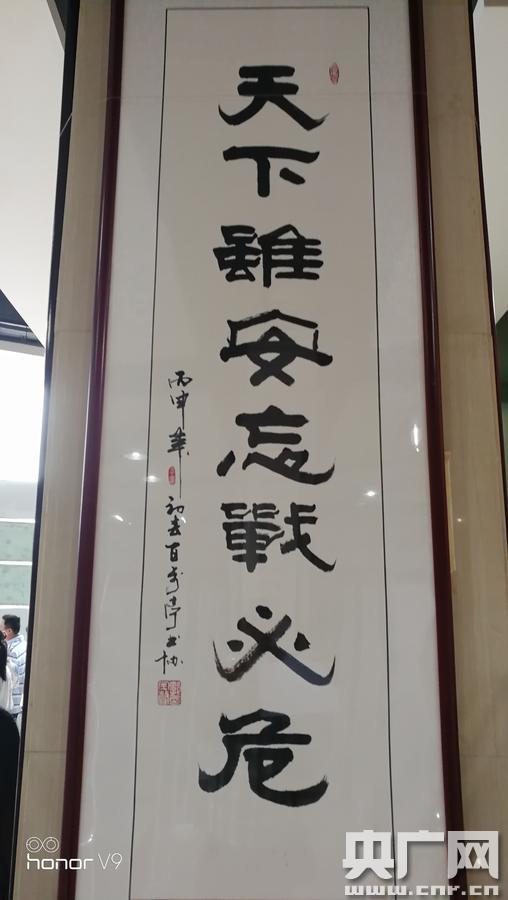 天下雖安忘戰必危
丙申年
初春百
honor V9
央广网
www.cnr.cn